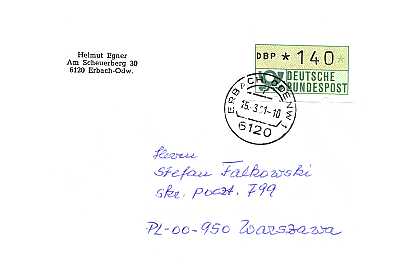 Helmut Egner
Am Scheuerberg 30
6120 Erbach-Odw.
DBP * 140 *
DEUTSCHE
BUNDESPOST
ERBACH, ODENW 1
15.-3.-10
6120
Herrn
Stefan Falkowski
skr. poczt. 799
PL-00-950 Warszawa